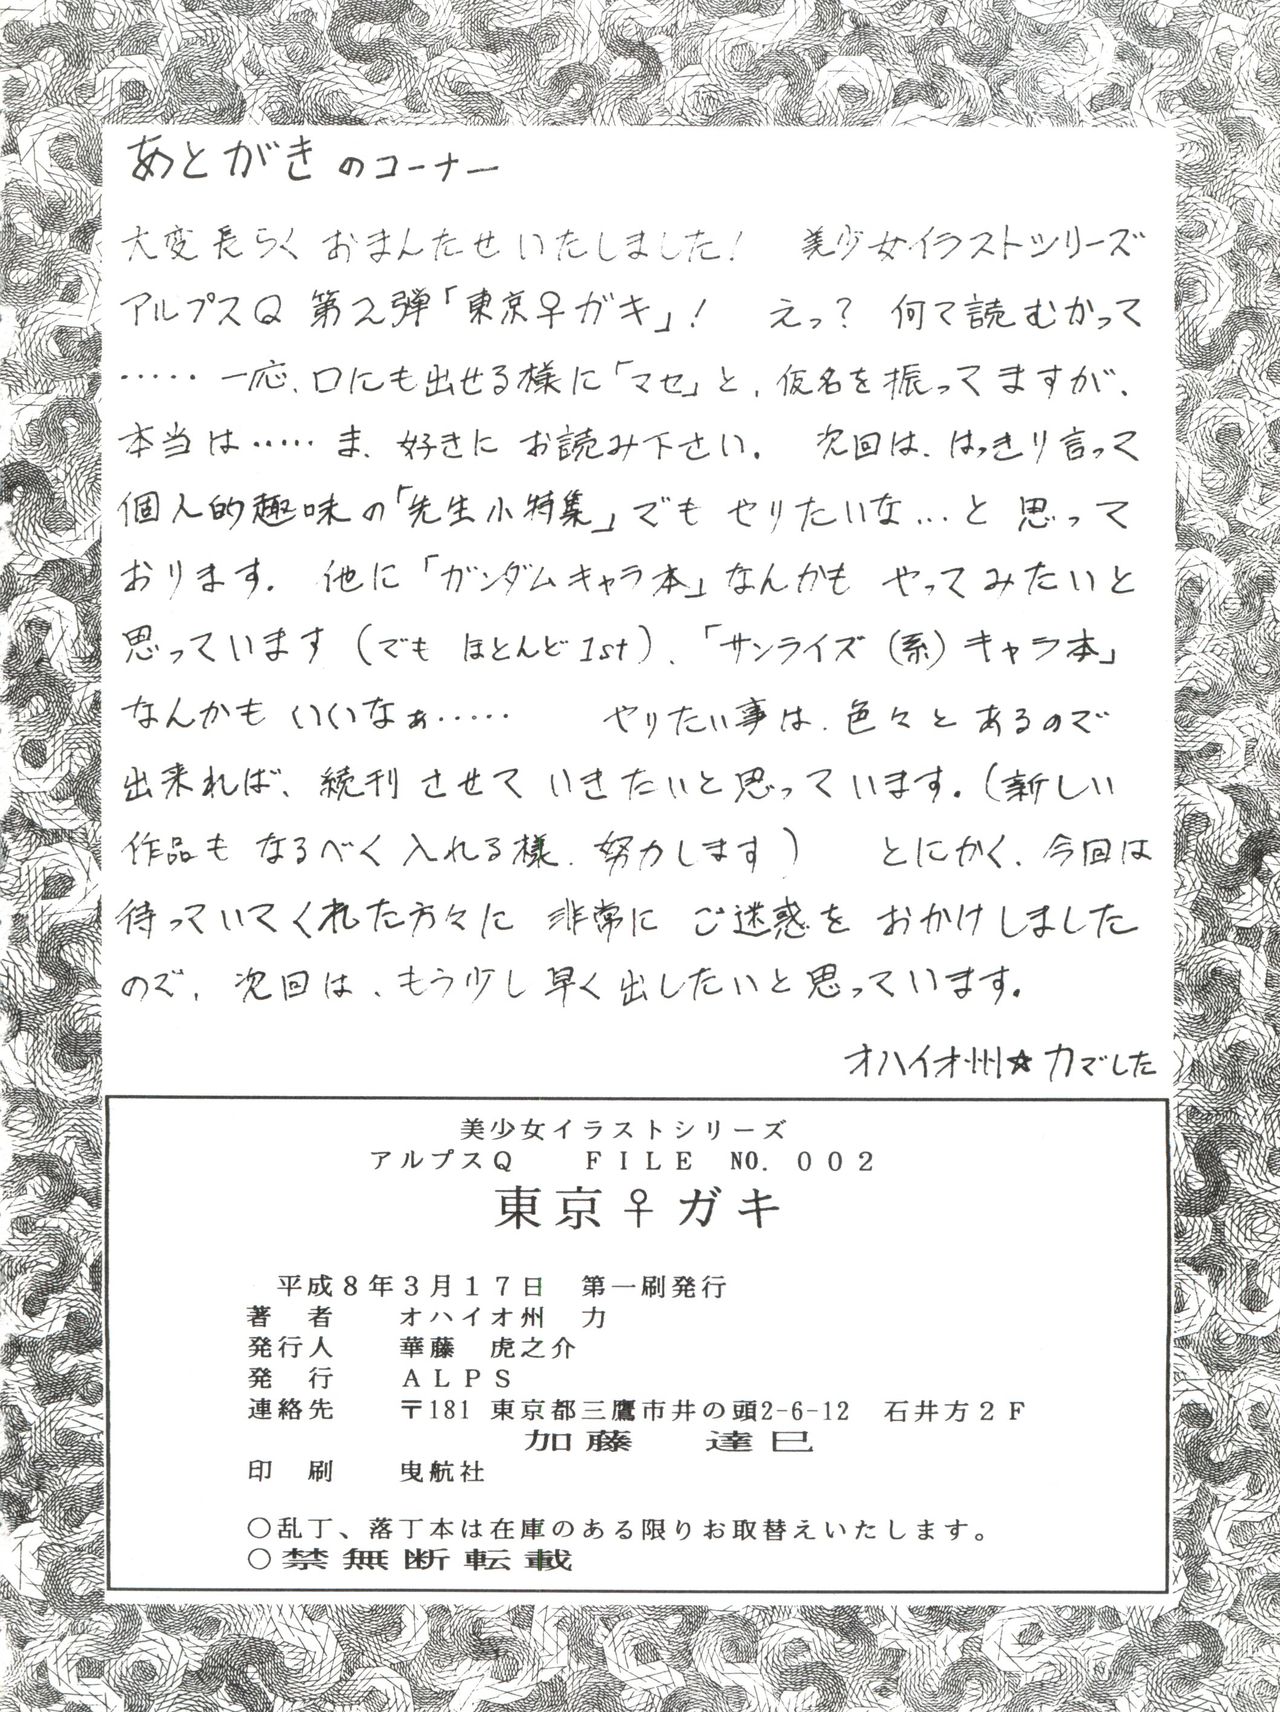 あとがきのコーナー
大変長らくおまんたせいたしました！　美少女イラストシリーズ
アルプスQ 第2弾「東京♀ガキ」！　えっ？ 何て読むかって
‥‥‥一応、口にも出せる様に「マセ」と、仮名を振ってますが、
本当は‥‥‥ま、好きにお読み下さい。　次回は、はっきり言って
個人的趣味の「先生小特集」でもやりたいな…と思って
おります。　他に「ガンダムキャラ本」なんかもやってみたいと
思っています（でもほとんど1st）、「サンライズ（系）キャラ本」
なんかもいいなぁ‥‥‥　　やりたい事は、色々とあるので
出来れば、続刊させていきたいと思っています。（新しい
作品もなるべく入れる様、努力します）　　とにかく、今回は
待っていてくれた方々に非常にご迷惑をおかけしました
ので、次回は、もう少し早く出したいと思っています。
オハイオ州☆力でした
美少女イラストシリーズ
アルプスQ　　FILE　NO．００２
東京♀ガキ
平成８年３月１７日　第一刷発行
著　者　　オハイオ州　力
発行人　　華藤　虎之介
発　行　　ＡＬＰＳ
連絡先　　〒181 東京都三鷹市井の頭2-6-12　石井方２Ｆ
加藤　　達巳
印　刷　　曳航社
○乱丁、落丁本は在庫のある限りお取替えいたします。
○禁無断転載